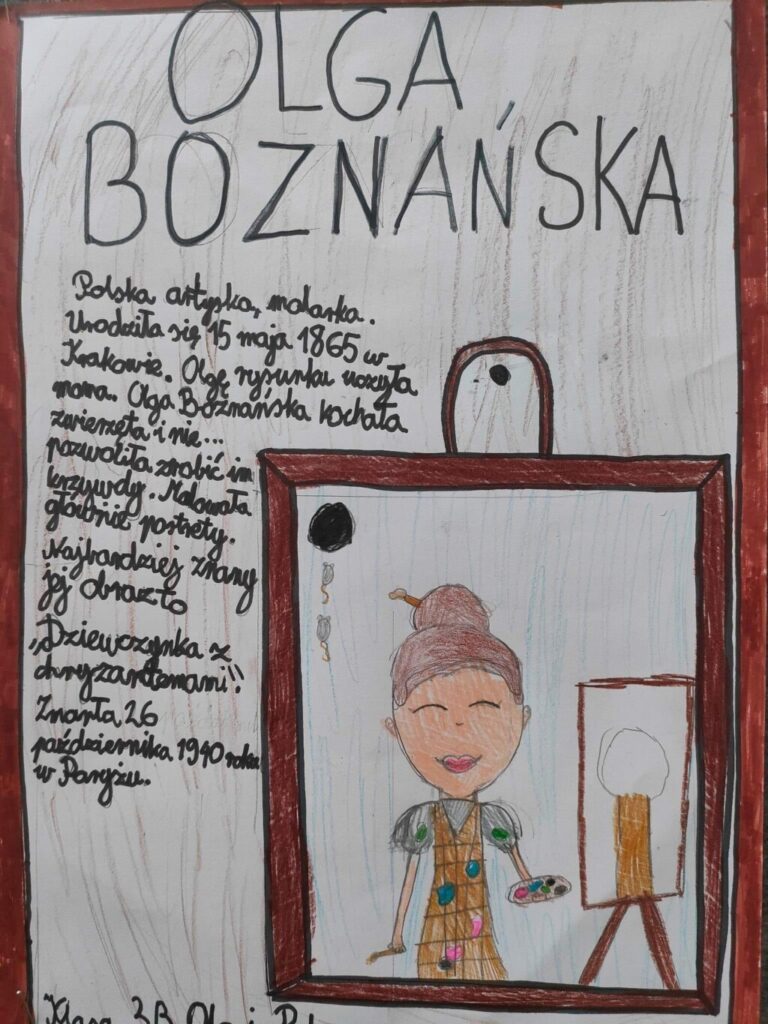 OLGA
BOZNAŃSKA
Polska artyska, malarka.
Urodziła się 15 maja 1865 w
Krakowie. Olgę rysunku uczyła
mama. Olga Boznańska kochała
zwierzęta i nie...
pozwoliła zrobić im
krzywdy. Malowała
głównie portrety.
Najbardziej znany
jej obraz to
„Dziewczynka z
chryzantemami”.
Zmarła 26
października 1940 roku
w Paryżu.
Klasa 3B Ola i